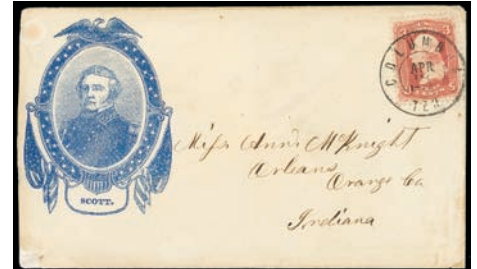 SCOTT.
COLUMBIA
APR
TEN
Miss Ann McKnight
Orleans
Orange Co
Indiana